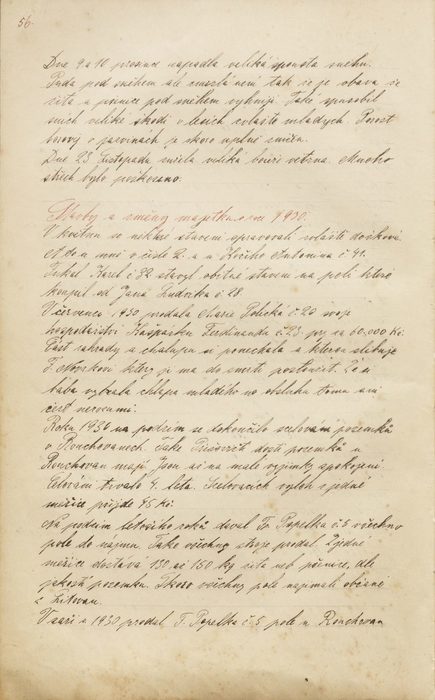 56.
Dne 9 a 10 prosince napadla veliká spousta sněhu.
Půda pod sněhem ale zmrzlá není tak se je obava že
žita a pšenice pod sněhem vyhnijí. Také způsobil
sníh veliké škody v lesích zvláště mladých. Porost
borový v je skoro úplně zničen.
Dne 23 Listopadu zuřila veliká bouře větrná. Mnoho
střech bylo poškozeno.
Stavby a změny majitelů v roce 1930.
V květnu se některé stavení spravovali zvláště došková
A to u mně v čísle 2. a u Antonína č 41.
Karel č 32 stavěl obytné stavení na poli které
koupil od Jana Ludvíka č 28.
V červenci 1930 prodala Marie č 20 svoje
hospodářství Kašpárku Ferdinandu č 23 za 60.000 Kč
Část zahrady a chalupu si ponechala a kterou slibuje
F. který jí má do smrti posloužit. Že si
bába vybrala chlapa mladého na obsluhu tomu ani
čert nerozumí.
Roku 1930 na podzim se dokončilo scelování pozemků
v Rouchovanech. Také dosti pozemků u
Rouchovan mají. Jsou až na malé vyjímky spokojení.
Scelování trvalo 4 léta. Scelovacích výloh z jedné
měřice přijde 45 Kč.
Na podzim letošího roků daval F. Popelka č 5 všechno
pole do nájmu. Také všechny stroje prodal. Z jedné
měřice dostává 130 až 150 kg žita neb pšenice, dle
jakosti pozemku. Skoro všechny pole najímali občané
z Litovan.
V září 1930 prodal F. Popelka č 5 pole u Rouchovan